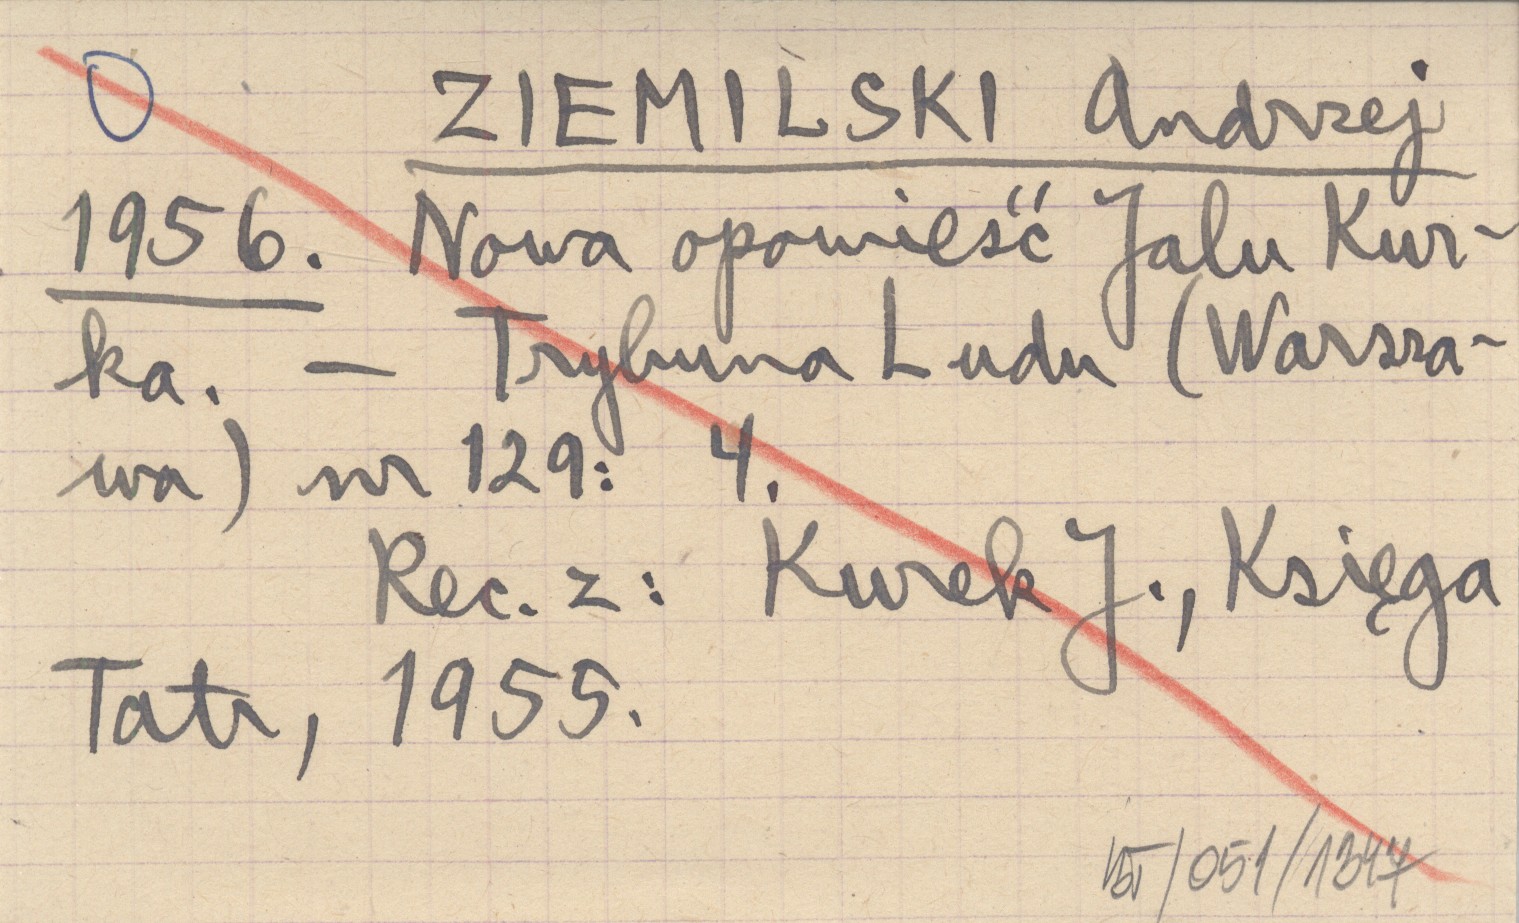 ZIEMILSKI Andrzej
1956. Nowa opowieść Jalu Kur-
ka. — Trybuna Ludu (Warsza-
wa) nr 129: 4.
Rec. z: Kurek J., Księga
Tatr, 1955.
/051/1347